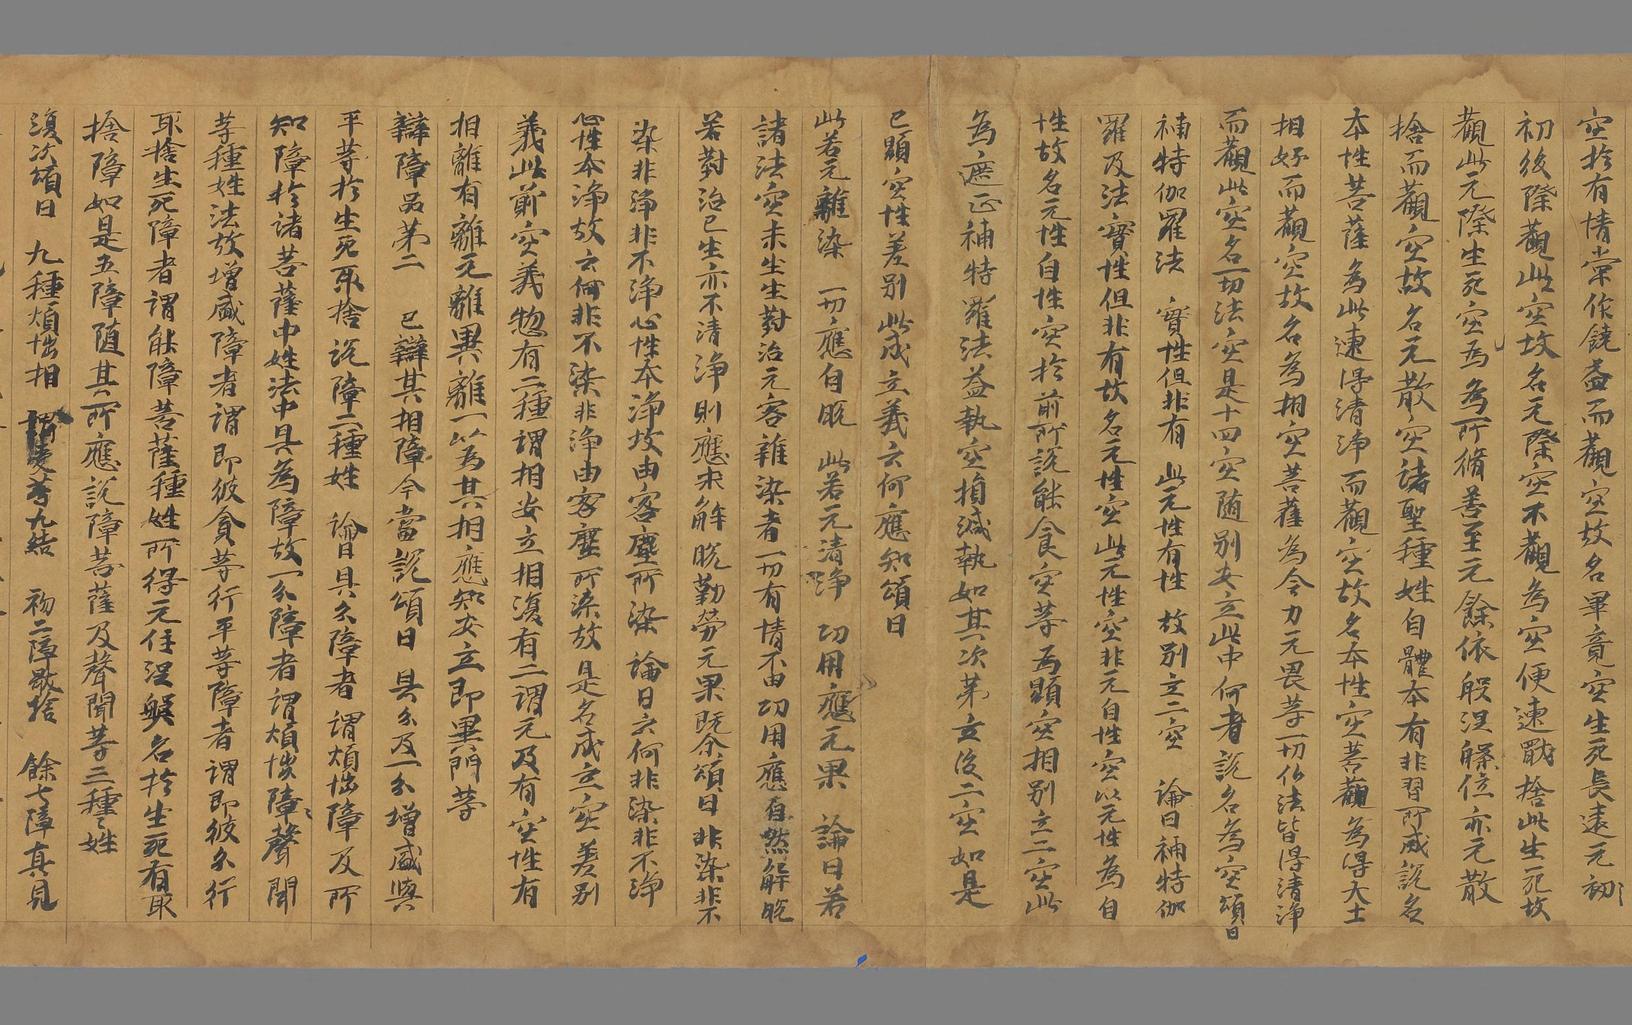 空於有情常作饒益而觀空故名畢竟空生死長遠元初
初後際觀此空故名元際空不觀為空便速猒捨此生死故
觀此元際生死空為為所脩善至元餘依般涅槃位亦元散
捨而觀空故名元散空諸聖種姓自體本有非習所成說名
本性菩薩為此速得清淨而觀空故名本性空菩觀為得大士
相好而觀空故名為相空菩薩為令力元畏等一切仏法皆得清淨
而觀此空名一切法空是十四空随別安立此中何者說名為空頌曰
補特伽羅法 實性但非有 此元性有性 故別立二空 論曰補特伽
羅及法實性但非有故名元性空此元性空非元自性空以元性為自
性故名元性自性空於前所說能食空等為顯空相別立二空此
為遮止補特羅法益執空損減執如其次第立後二空如是
已顯空性差別此成立義云何應知頌曰
此若元離染 一切應自脫 此若元清淨 功用應元果 論曰若
諸法空未生生對治元客雜染者一切有情不由功用應自然解脫
若對治已生亦不清淨則應求解脫勤勞元果既尒頌曰非染非不
染非淨非不淨心性本淨故由客塵所染 論曰云何非染非不淨
心性本淨故云何非不染非淨由客塵所染故是名成立空差別
義此前空義惣有二種謂相安立相復有二謂元及有空性有
相離有離元離異離一以為其相應知安立即異門等
辯障品第二 已辯其相障今當說頌曰 具分及一分增盛與
平等於生死取捨 說障二種姓 論曰具分障者謂煩惱障及所
知障於諸菩薩中姓法中具為障故一分障者謂煩惱障障聲聞
等種姓法故增盛障者謂即彼貪等行平等障者謂即彼分行
取捨生死障者謂能障菩薩種姓所得元住涅槃名於生死有取
捨障如是五障随其所應說障菩薩及聲聞等三種種姓
復次頌曰 九種煩惱相 謂愛等九結 初二障猒捨 餘七障真見